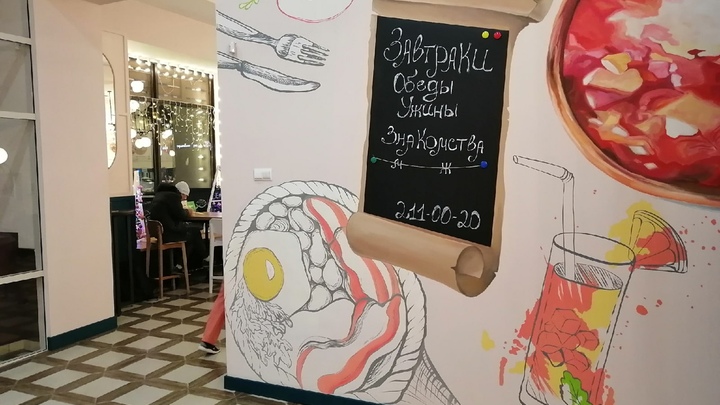 Завтраки
Обеды
Ужины
Знакомства
М Ж
211-00-20